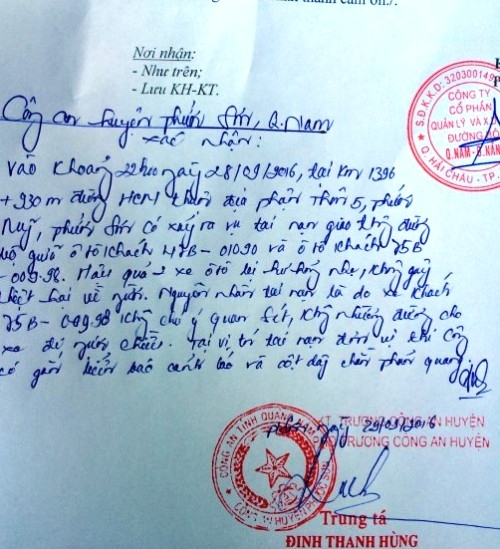 thành cảm ơn./.
Nơi nhận:
- Như trên;
- Lưu KH-KT.
S.Đ.K.K.D: 32030014
CÔNG TY
CỔ PHẦN
QUẢN LÝ VÀ X
ĐƯỜNG BỘ
Q.NAM-Đ.NẴN
Q. HẢI CHÂU - TP.
Công an huyện Phước Sơn, Q.Nam
xác nhận:
Vào khoảng 22h00 ngày 28/09/2016, tại Km 1396
+ 930 m đường HCM thuộc địa phận thôn 5, Phước
Mỹ, Phước Sơn có xảy ra vụ tai nạn giao thông đường
bộ giữa ô tô khách 47B-01090 và ô tô khách 75B
-009.98. Hậu quả 2 xe ô tô bị hư hỏng nhẹ, không gây
thiệt hại về người. Nguyên nhân tai nạn là do xe khách
75B-009.98 không chú ý quan sát, không nhường đường cho
xe đi ngược chiều. Tại vị trí tai nạn đơn vị thi công
có gắn biển báo cảnh báo và cột dây phản quang
ngày 29/09/2016
KT. TRƯỞNG CÔNG AN HUYỆN
PHÓ TRƯỞNG CÔNG AN HUYỆN
CÔNG AN TỈNH QUẢNG NAM
CÔNG AN HUYỆN PHƯỚC SƠN
Trung tá
ĐINH THANH HÙNG